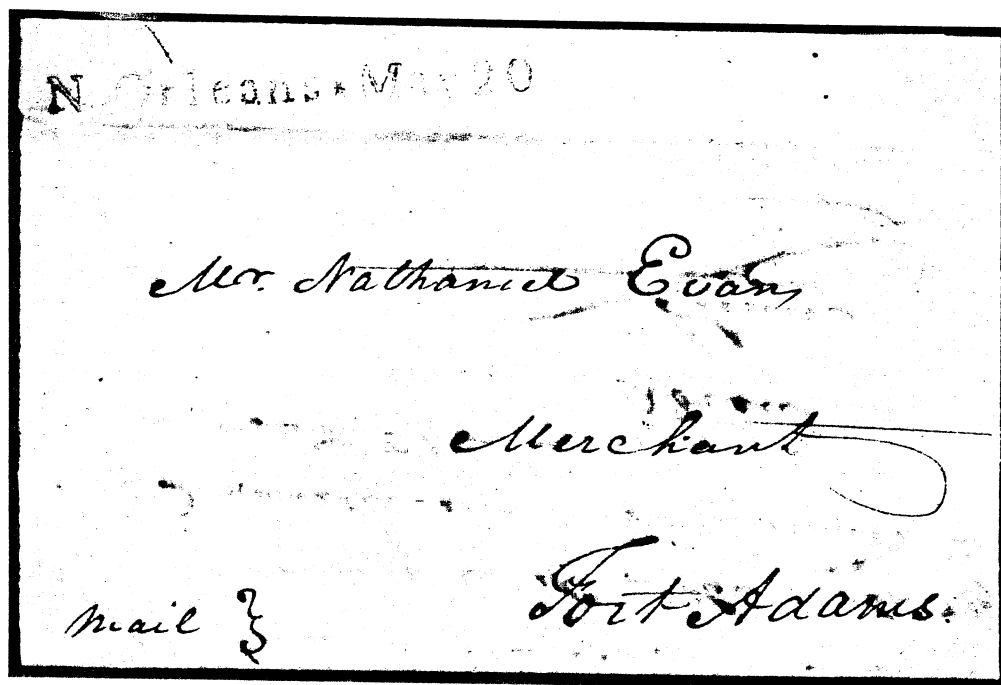 N Orleans*May 20
Mr. Nathaniel Evans
Merchant
Fort Adams.
Mail }